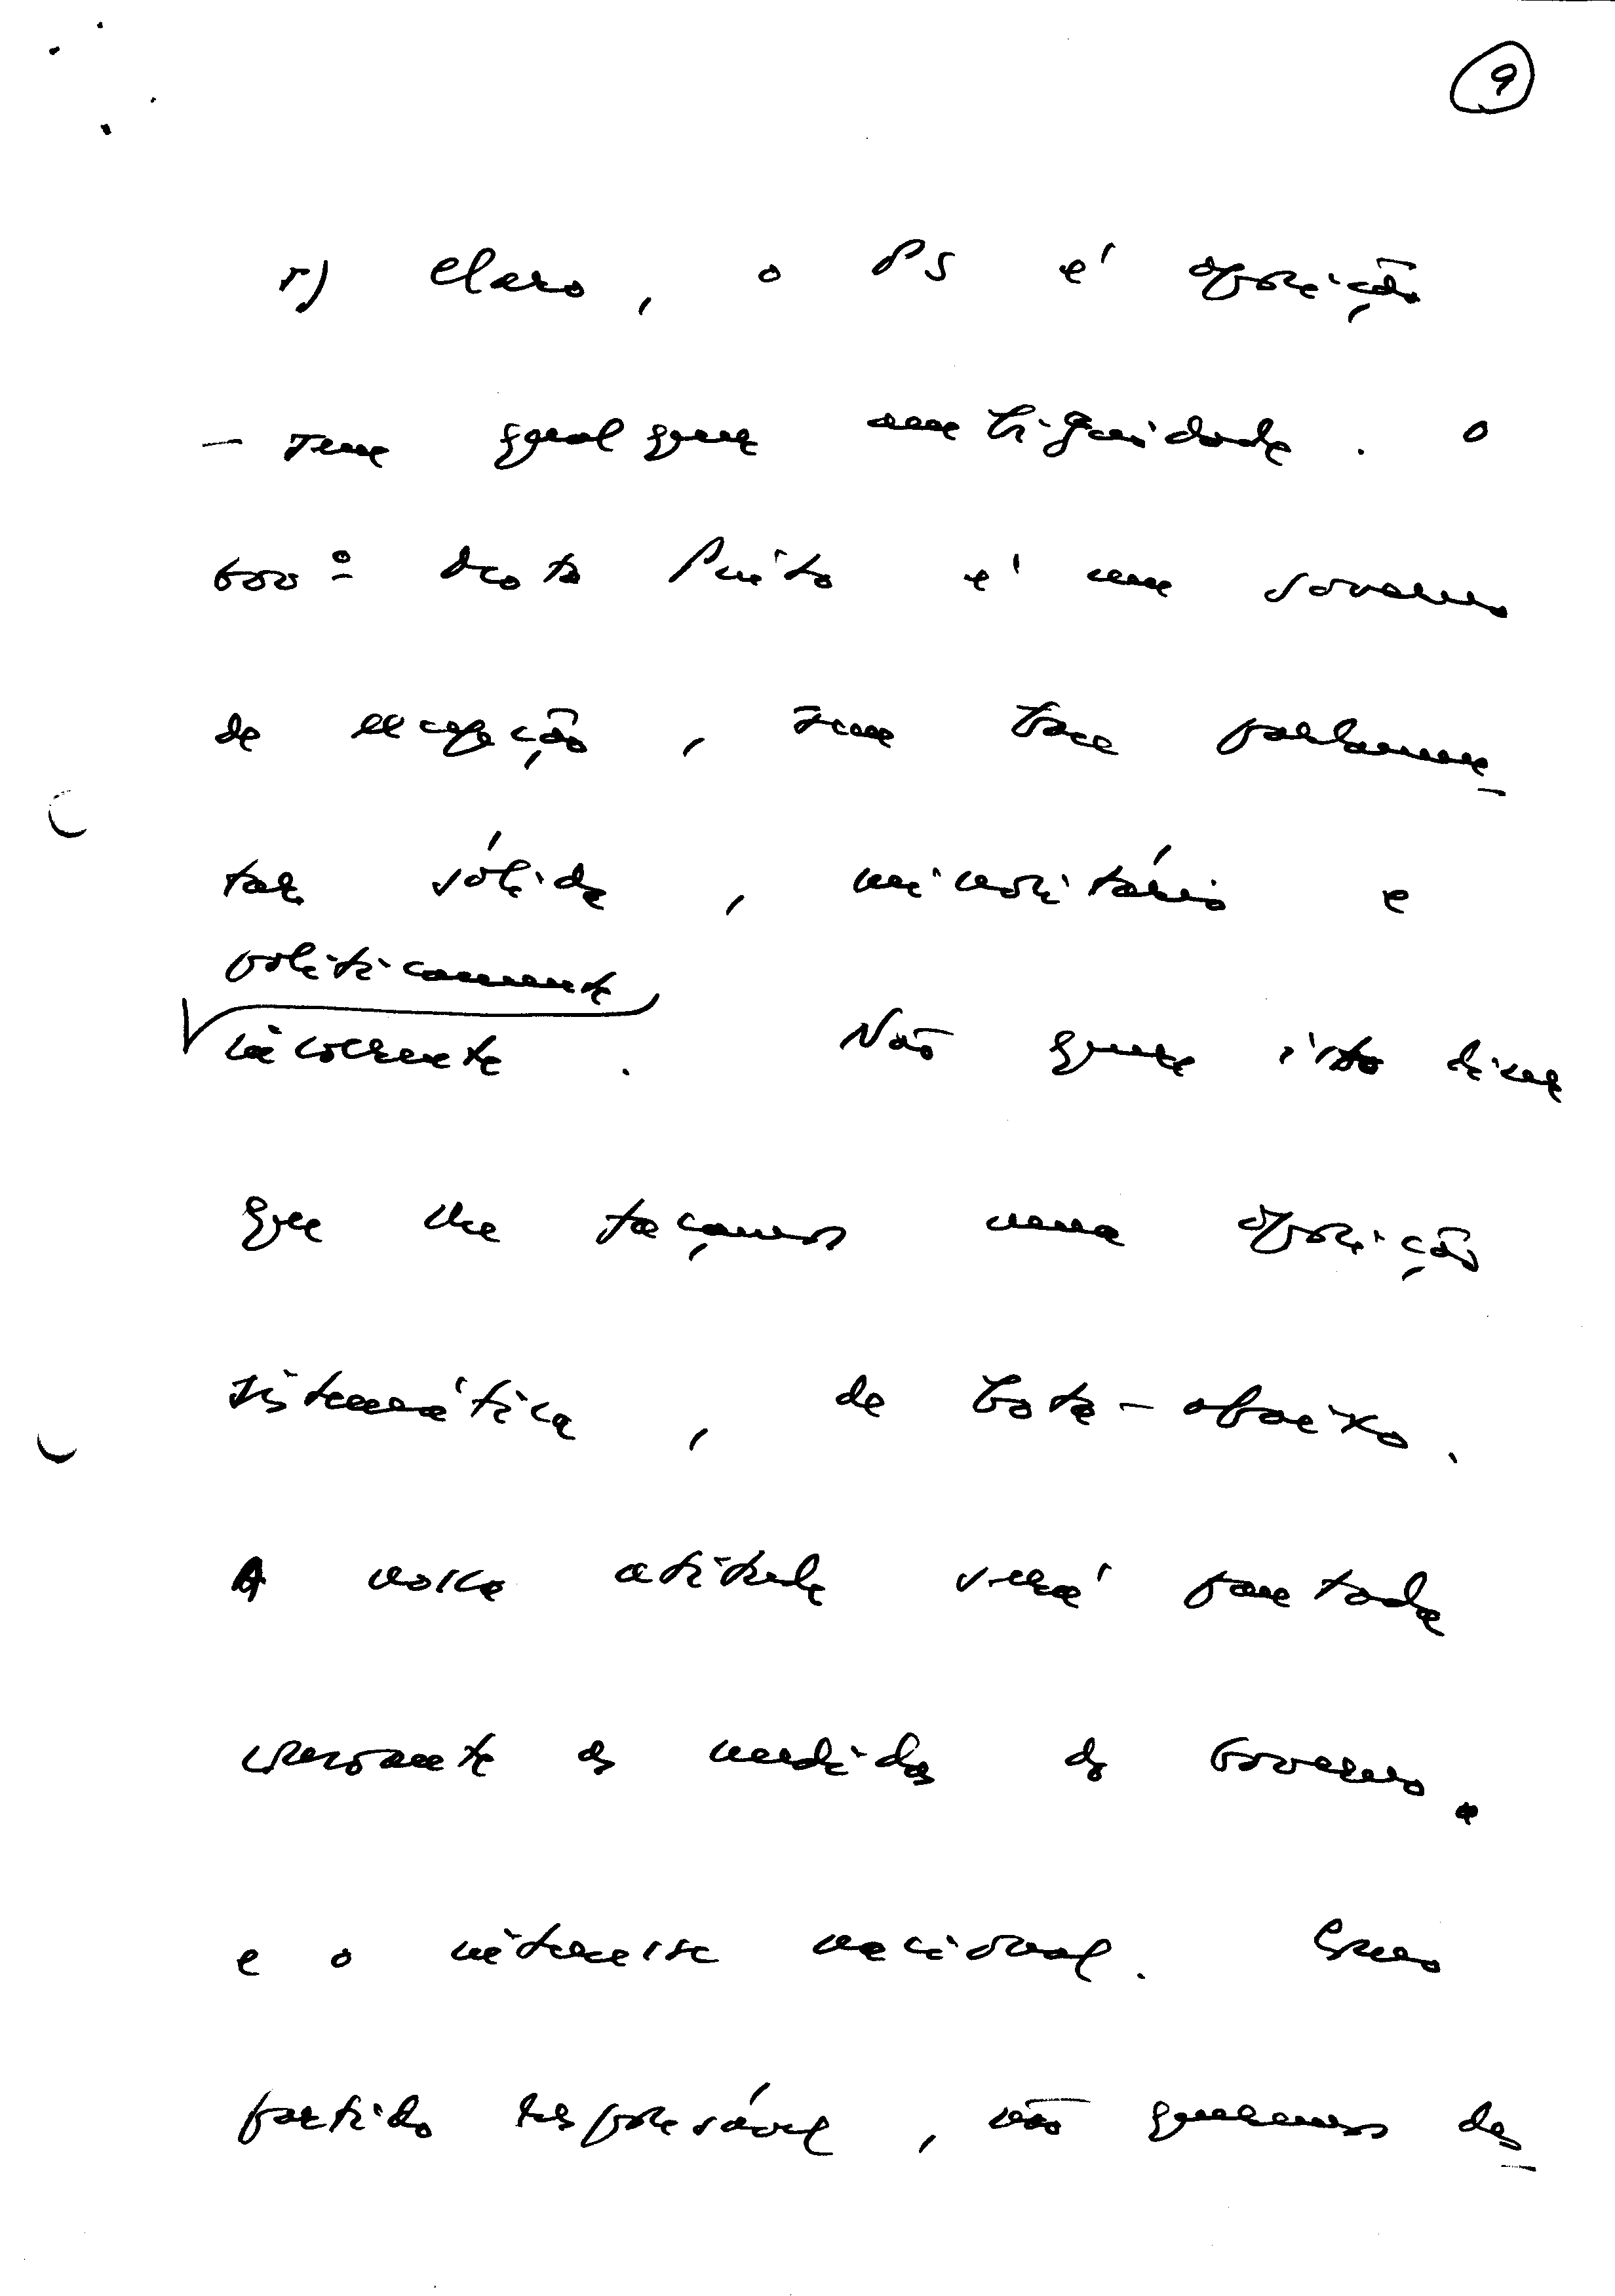 9
r) Claro, o PS é oposição
- sem qualquer ambiguidade. O
Gov.º Mota Pinto é um Governo
de excepção, sem base parlamen-
tar sólida, minoritário e
politicamente
incoerente. Não quer isto dizer
que lhe façamos uma oposição
sistemática, de bota-abaixo.
A nossa atitude será pautada
consoante as medidas do Governo
e o interesse nacional. Como
partido responsável, não queremos des-